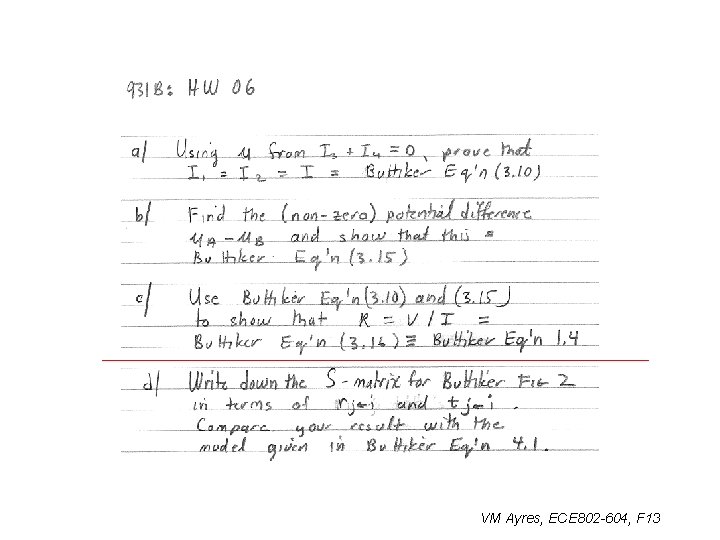 931B: HW 06
a) Using μ from I3 + I4 = 0, prove that
I1 = I2 = I = Buttiker Eq'n (3.10)
b) Find the (non-zero) potential difference
μA - μB and show that this =
Buttiker Eq'n (3.15)
c) Use Buttiker Eq'n (3.10) and (3.15)
to show that R = V / I =
Buttiker Eq'n (3.16) ≡ Buttiker Eq'n 1.4
d) Write down the S-matrix for Buttiker FIG 2
in terms of rj←j and tj←i.
Compare your result with the
model given in Buttiker Eq'n 4.1.
VM Ayres, ECE 802-604, F13